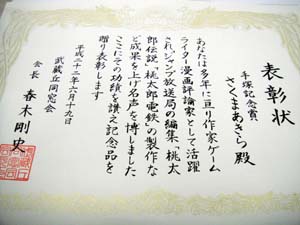 表彰状
手塚記念賞
さくまあきら 殿
あなたは多年に亘り作家ゲーム
ライター漫画評論家として活躍
されジャンプ放送局の編集「桃太
郎伝説」「桃太郎電鉄」の製作な
ど成果を上げ名声を博しました
ここにその功績を讃え記念品を
贈り表彰します
平成二十二年六月十九日
武蔵丘同窓会
会長 春木剛史